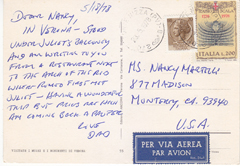 5/12/78
Dear Nancy,
In Verona - Stood
under Juliet's balcony
and am writing to you
from a restaurant next
to the arch of the
where Romeo first met
Juliet - Having a wonderful
trip but prices are high
am coming back a pauper
Love
Dad
ITALIA L.200
Ms. Nancy Martell
877 Madison
Monterey, CA. 93940
U.S.A.
PER VIA AEREA
PAR AVION